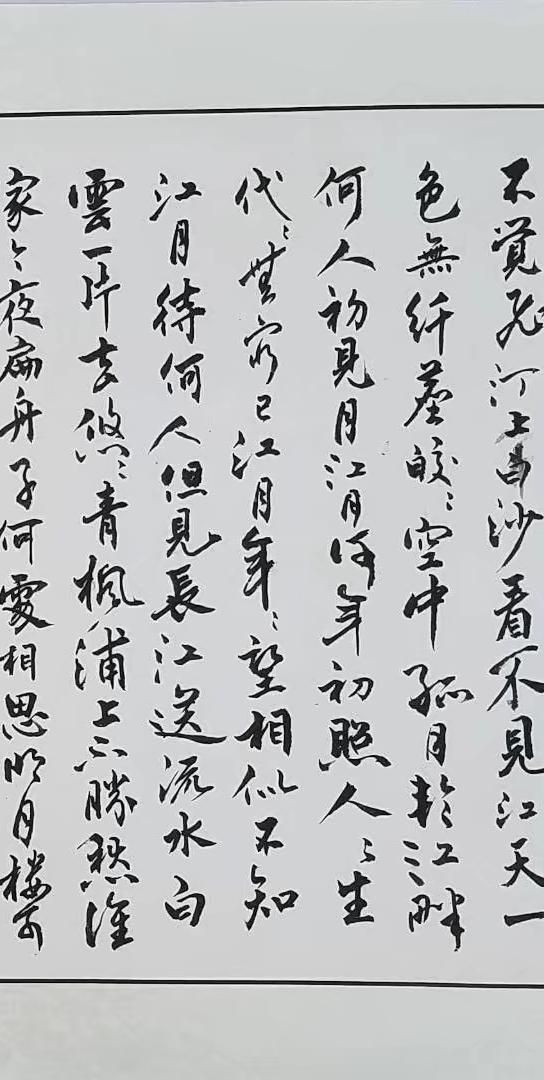 不覚飛汀上白沙看不見江天一
色無纤塵皎〻空中孤月輪江〻畔
何人初見月江月何年初照人〻生
代〻無窮已江月年〻望相似不知
江月待何人但見長江送流水白
雲一片去悠〻青楓浦上不勝愁誰
家今夜扁舟子何處相思明月樓可